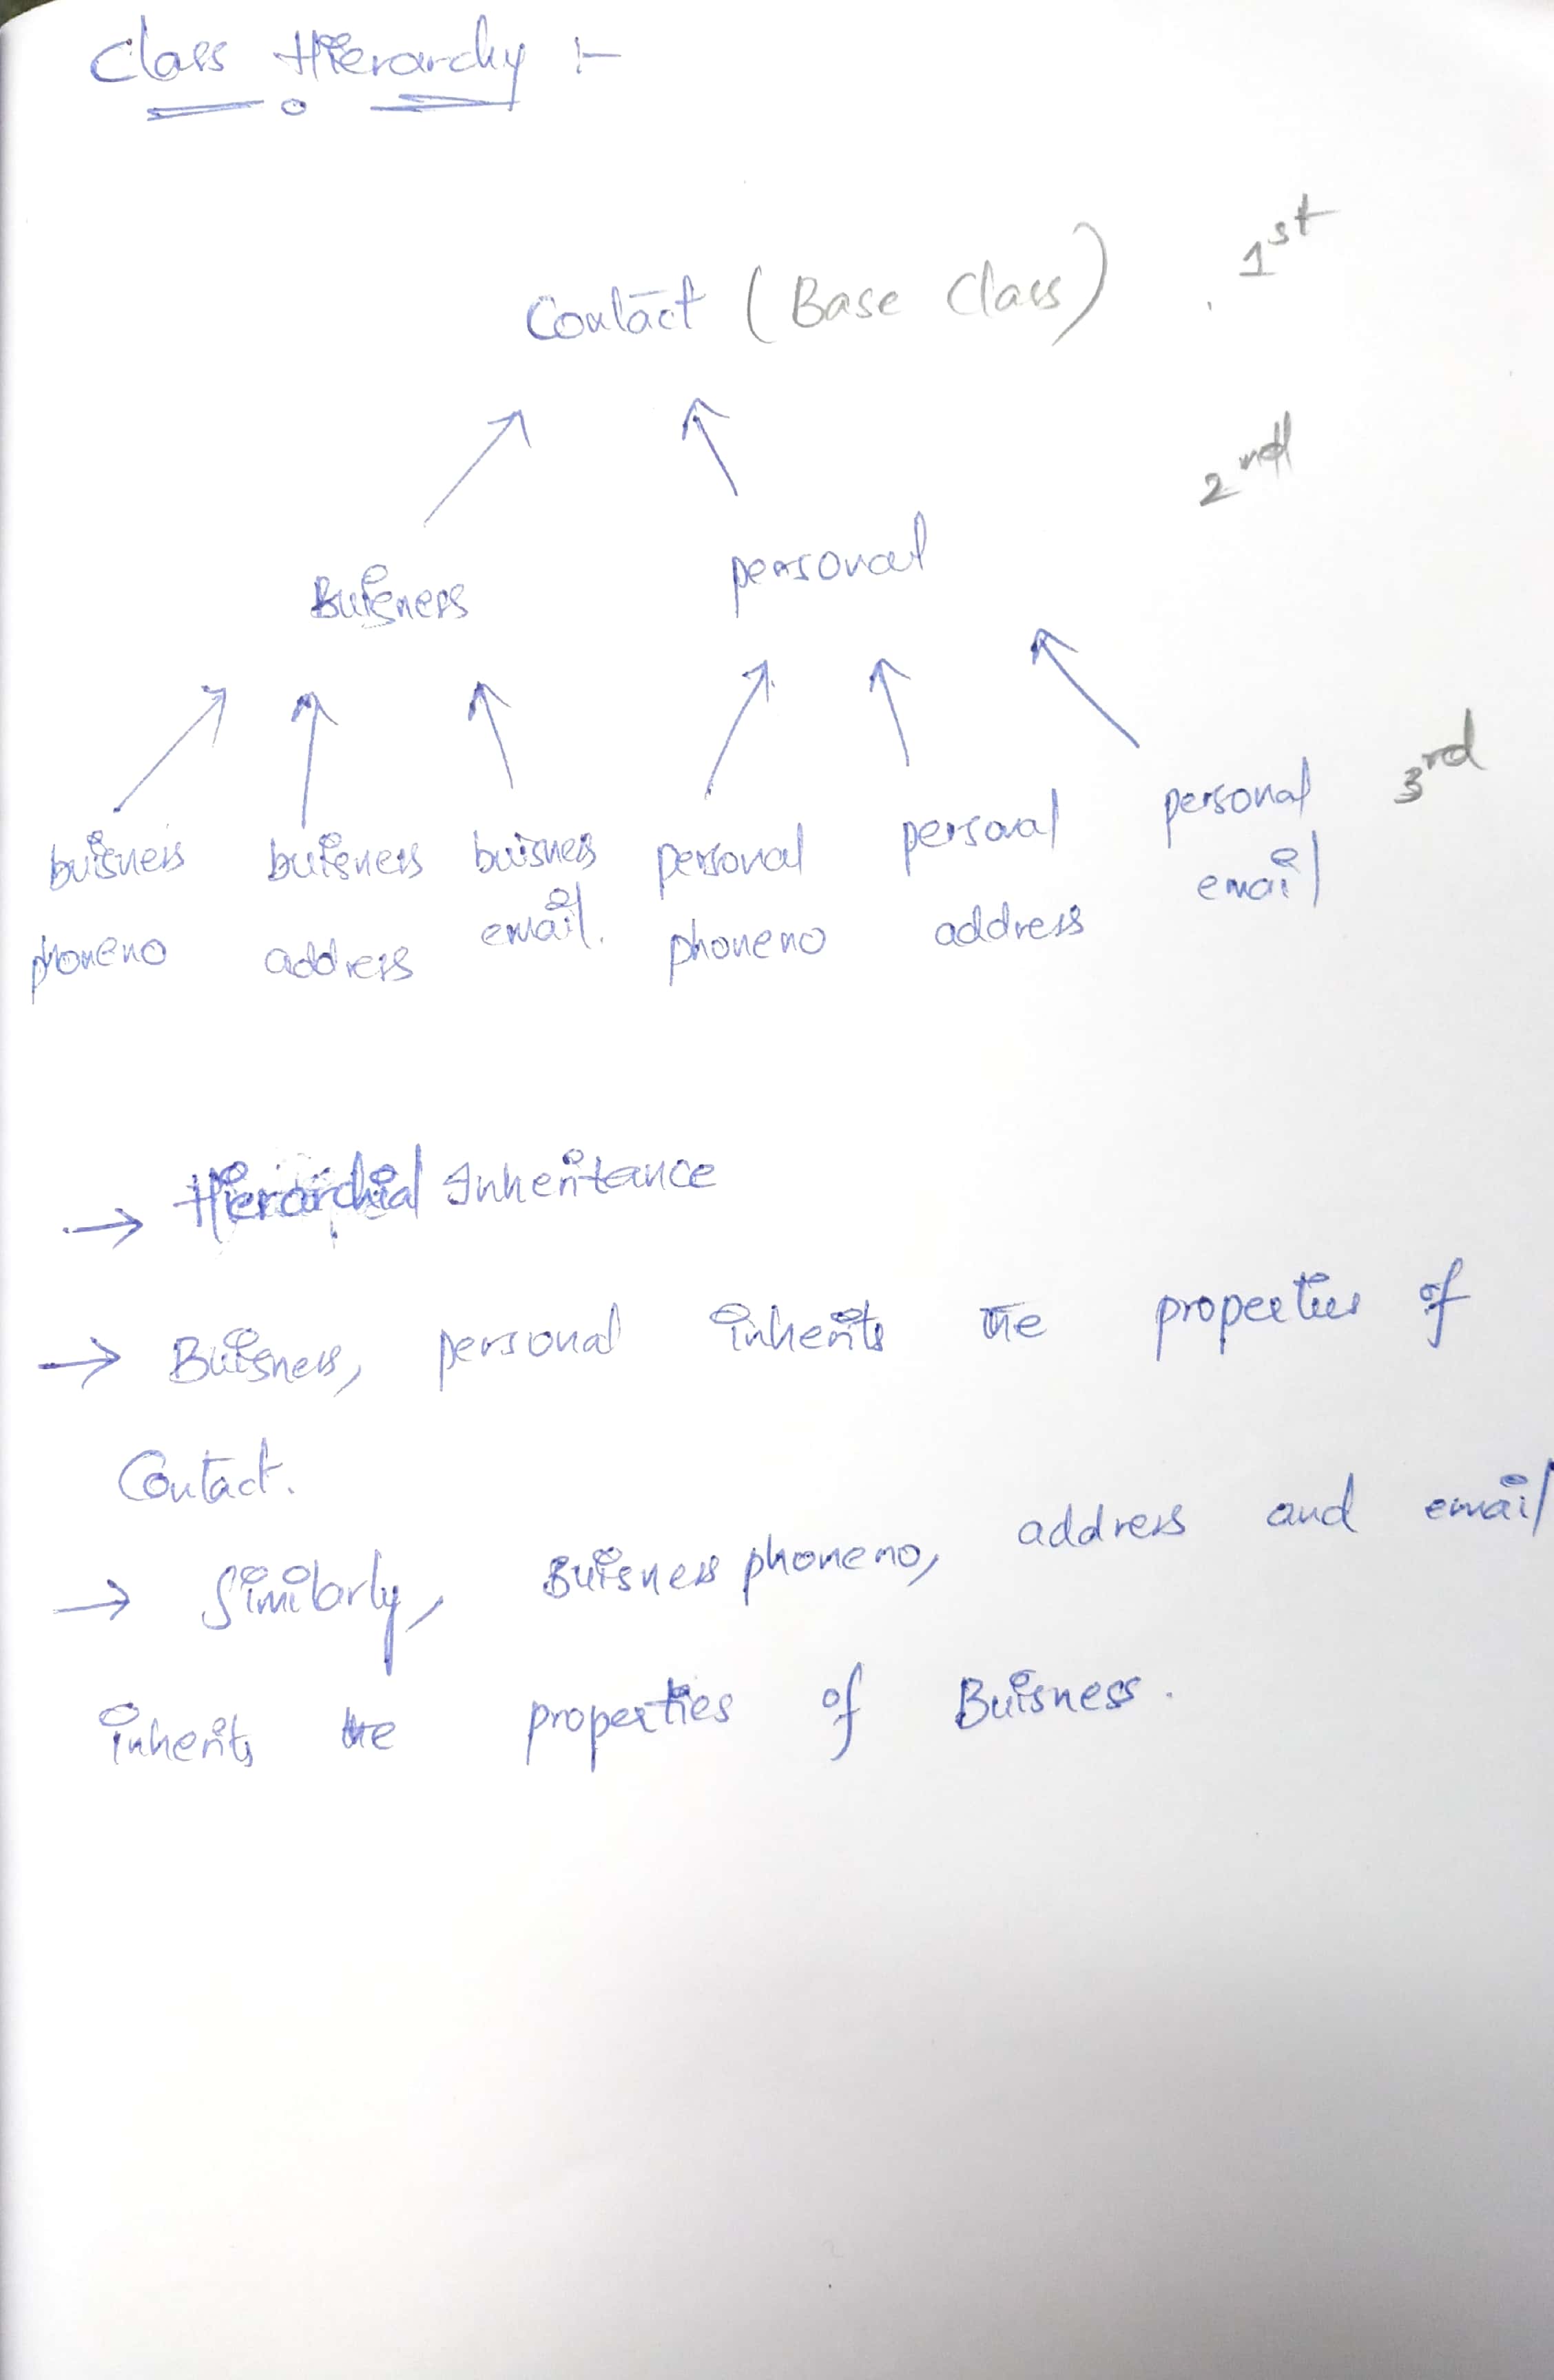 Class Hierarchy :-
Contact (Base Class) 1st
2nd
Buisness personal
3rd
buisness buisness buisness personal personal personal
phoneno address email. phoneno address email
→ Hierarchial Inheritance
→ Buisness, personal inherits the properties of
Contact.
→ Similarly, Buisness phoneno, address and email
inherits the properties of Buisness.